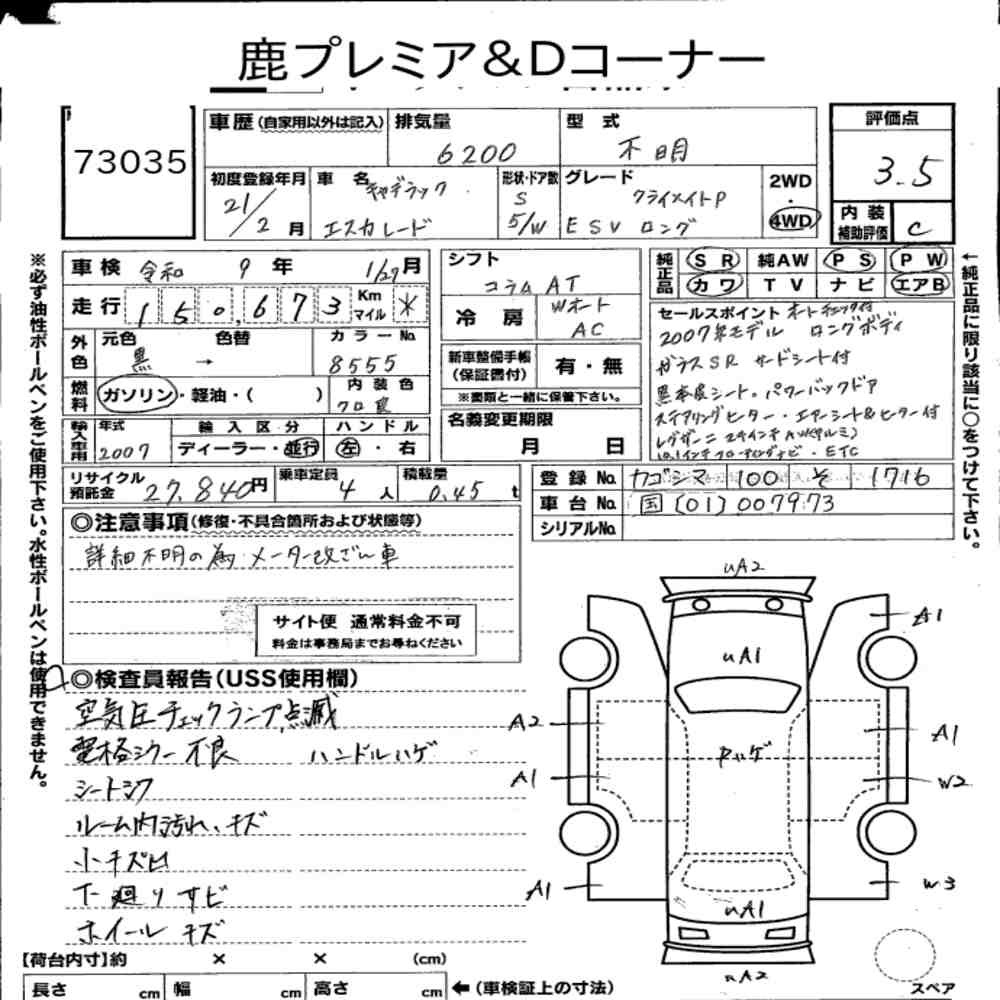 鹿プレミア&Dコーナー
73035
車歴 (自家用以外は記入)
排気量
6200
型式
不明
評価点
3.5
内装補助評価
C
初度登録年月
21/2月
車名
キャデラック
エスカレード
形状・ドア数
S
5/W
グレード
クライメイトP
ESV ロング
2WD
・
4WD
車検 令和 9年 1/27月
走行 150,673 Km マイル *
外色
元色 色替
黒 →
カラーNo
8555
燃料
ガソリン・軽油・( )
内装色
クロ革
輸入車用
年式
2007
輸入区分
ディーラー・並行
ハンドル
左・右
リサイクル預託金
27,840円
乗車定員
4人
積載量
0.45t
シフト
コラムAT
冷房
Wオート
AC
新車整備手帳
(保証書付)
有・無
※書類と一緒に保管下さい。
名義変更期限
月 日
純正品
SR 純AW PS PW
カワ TV ナビ エアB
セールスポイント オートチェック付
2007年モデル ロングボディ
ガラスSR サードシート付
黒本革シート・パワーバックドア
ステアリングヒーター・エアーシート&ヒーター付
レグザーニ 24インチAW(アルミ)
10.1インチフローティングナビ・ETC
登録No. カゴシマ 100 そ 1716
車台No. 国[01]007973
シリアルNo.
◎注意事項(修復・不具合箇所および状態等)
詳細不明の為メーター改ざん車
サイト便 通常料金不可
料金は事務局までお尋ねください
◎検査員報告(USS使用欄)
空気圧チェックランプ点滅
電格ミラー不良 ハンドルハゲ
シートシワ
ルーム内汚れ、キズ
小キズ凹
下廻りサビ
ホイールキズ
【荷台内寸】約 × × (cm)
長さ cm 幅 cm 高さ cm ←(車検証上の寸法)
※必ず油性ボールペンをご使用下さい。水性ボールペンは使用できません。
←純正品に限り該当に○をつけて下さい。
uA2
A1
uA1
A2
A1
Pハゲ
A1
W2
A1
W3
uA1
uA2
スペア